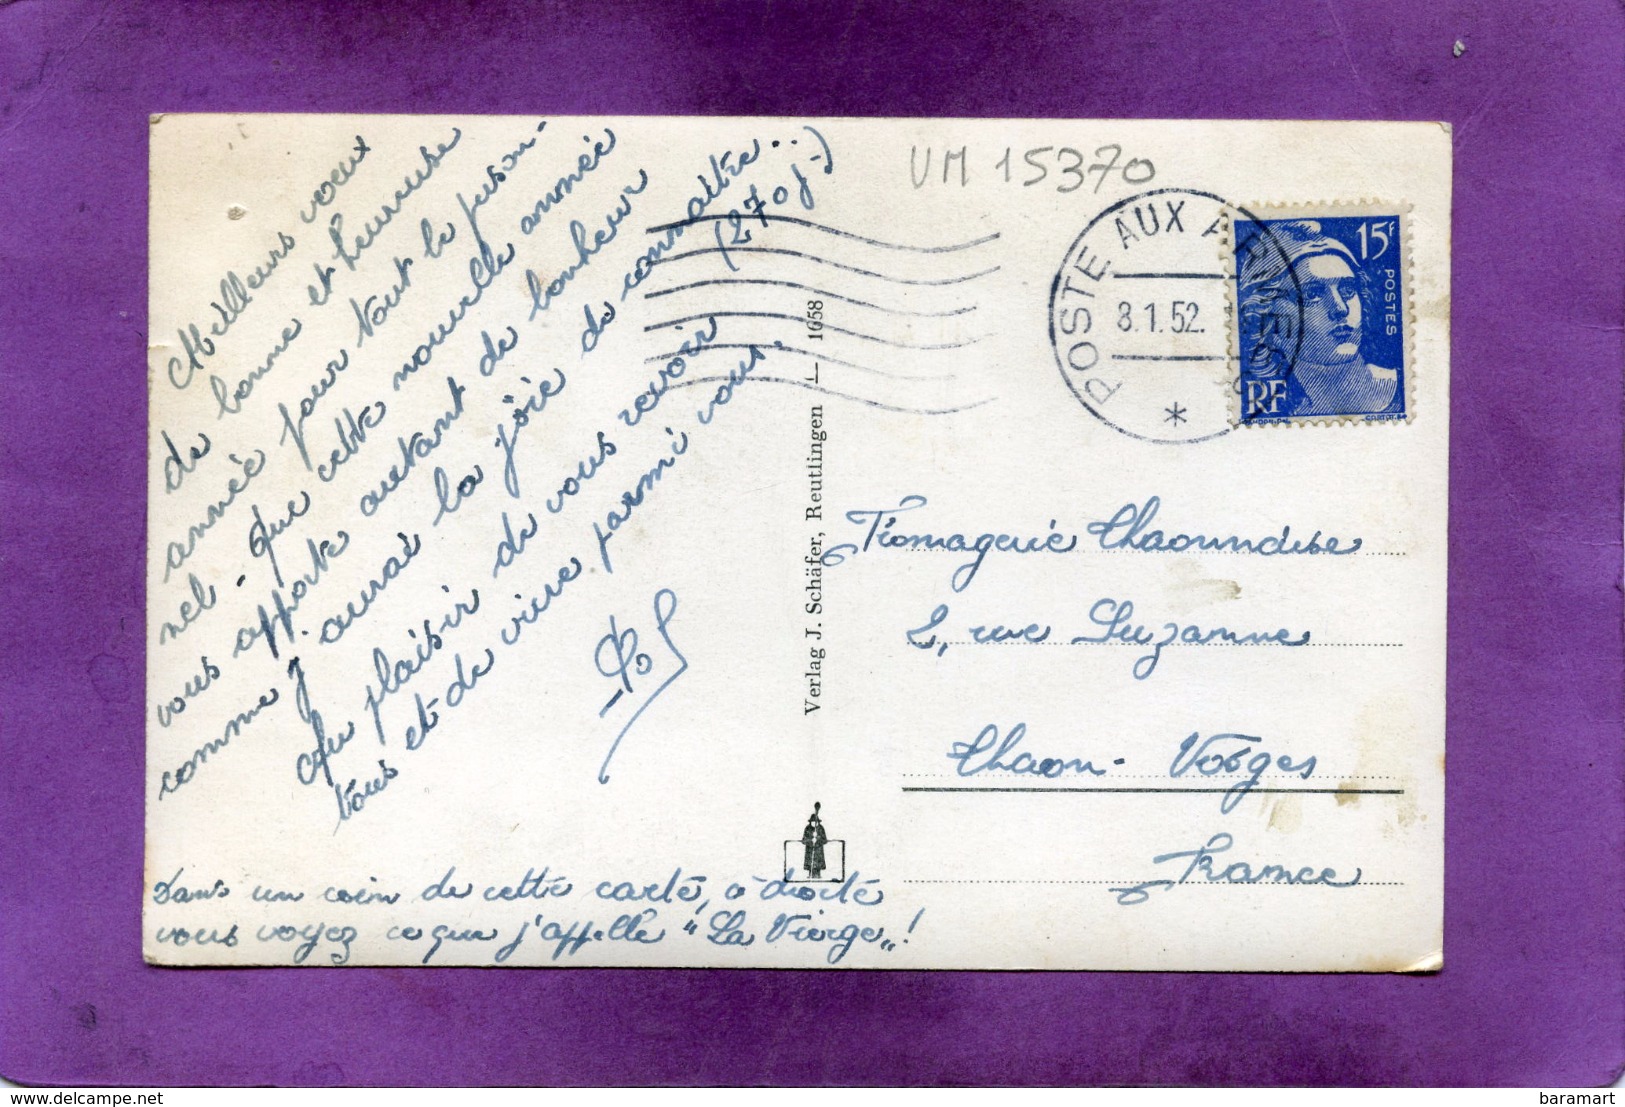 Meilleurs voeux
de bonne et heureuse
année pour tout le person-
nel - Que cette nouvelle année
vous apporte autant de bonheur
comme j'aurai la joie de connaître..
(270 j-)
Au plaisir de vous revoir
tous et de vivre parmi vous.
Dans un coin de cette carte, à droite
vous voyez ce que j'appelle "La Vierge"!
Verlag J. Schäfer, Reutlingen — 1658
UM 15370
POSTE AUX ARMEES
8.1.52.
*
15F
POSTES
RF
Fromagerie Thaonnaise
2, rue Suzanne
Thaon - Vosges
France
baramart